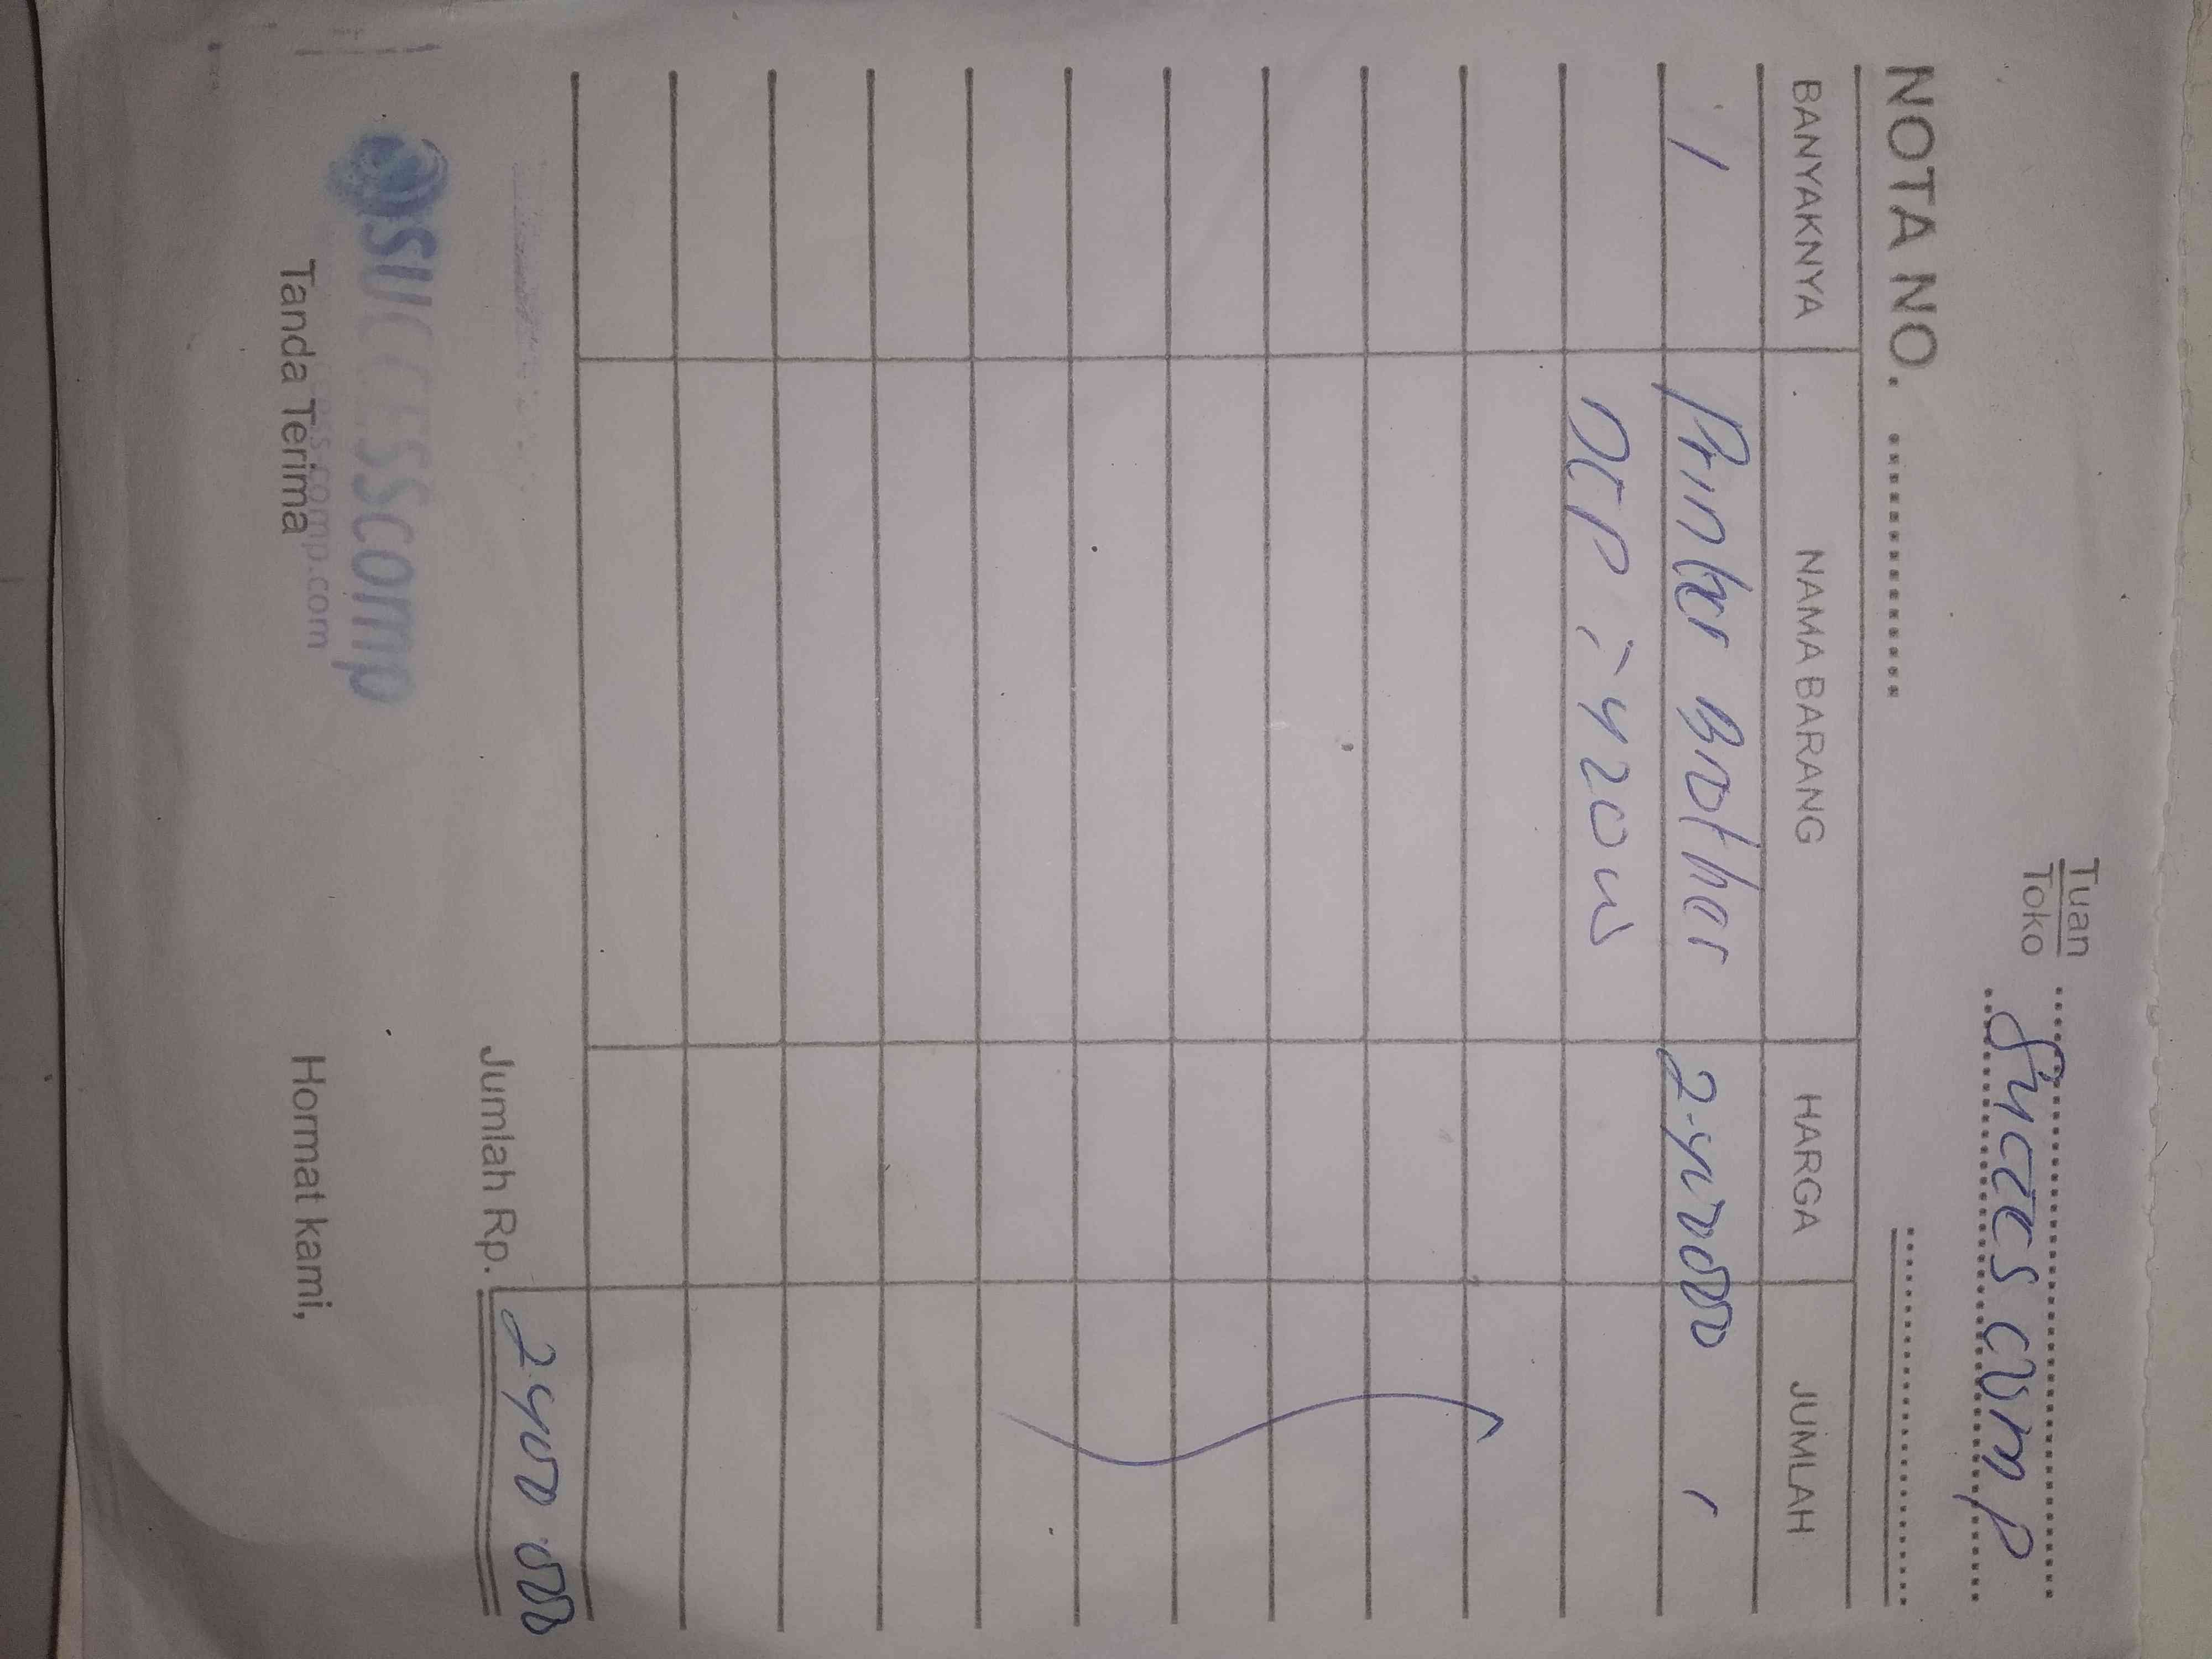 Tuan
Toko Succes comp
NOTA NO.
BANYAKNYA NAMA BARANG HARGA JUMLAH
1 Printer Brother 2.400.000
DCP : 420W
Jumlah Rp. 2.400.000
SUCCESScomp
Tanda Terima Hormat kami,